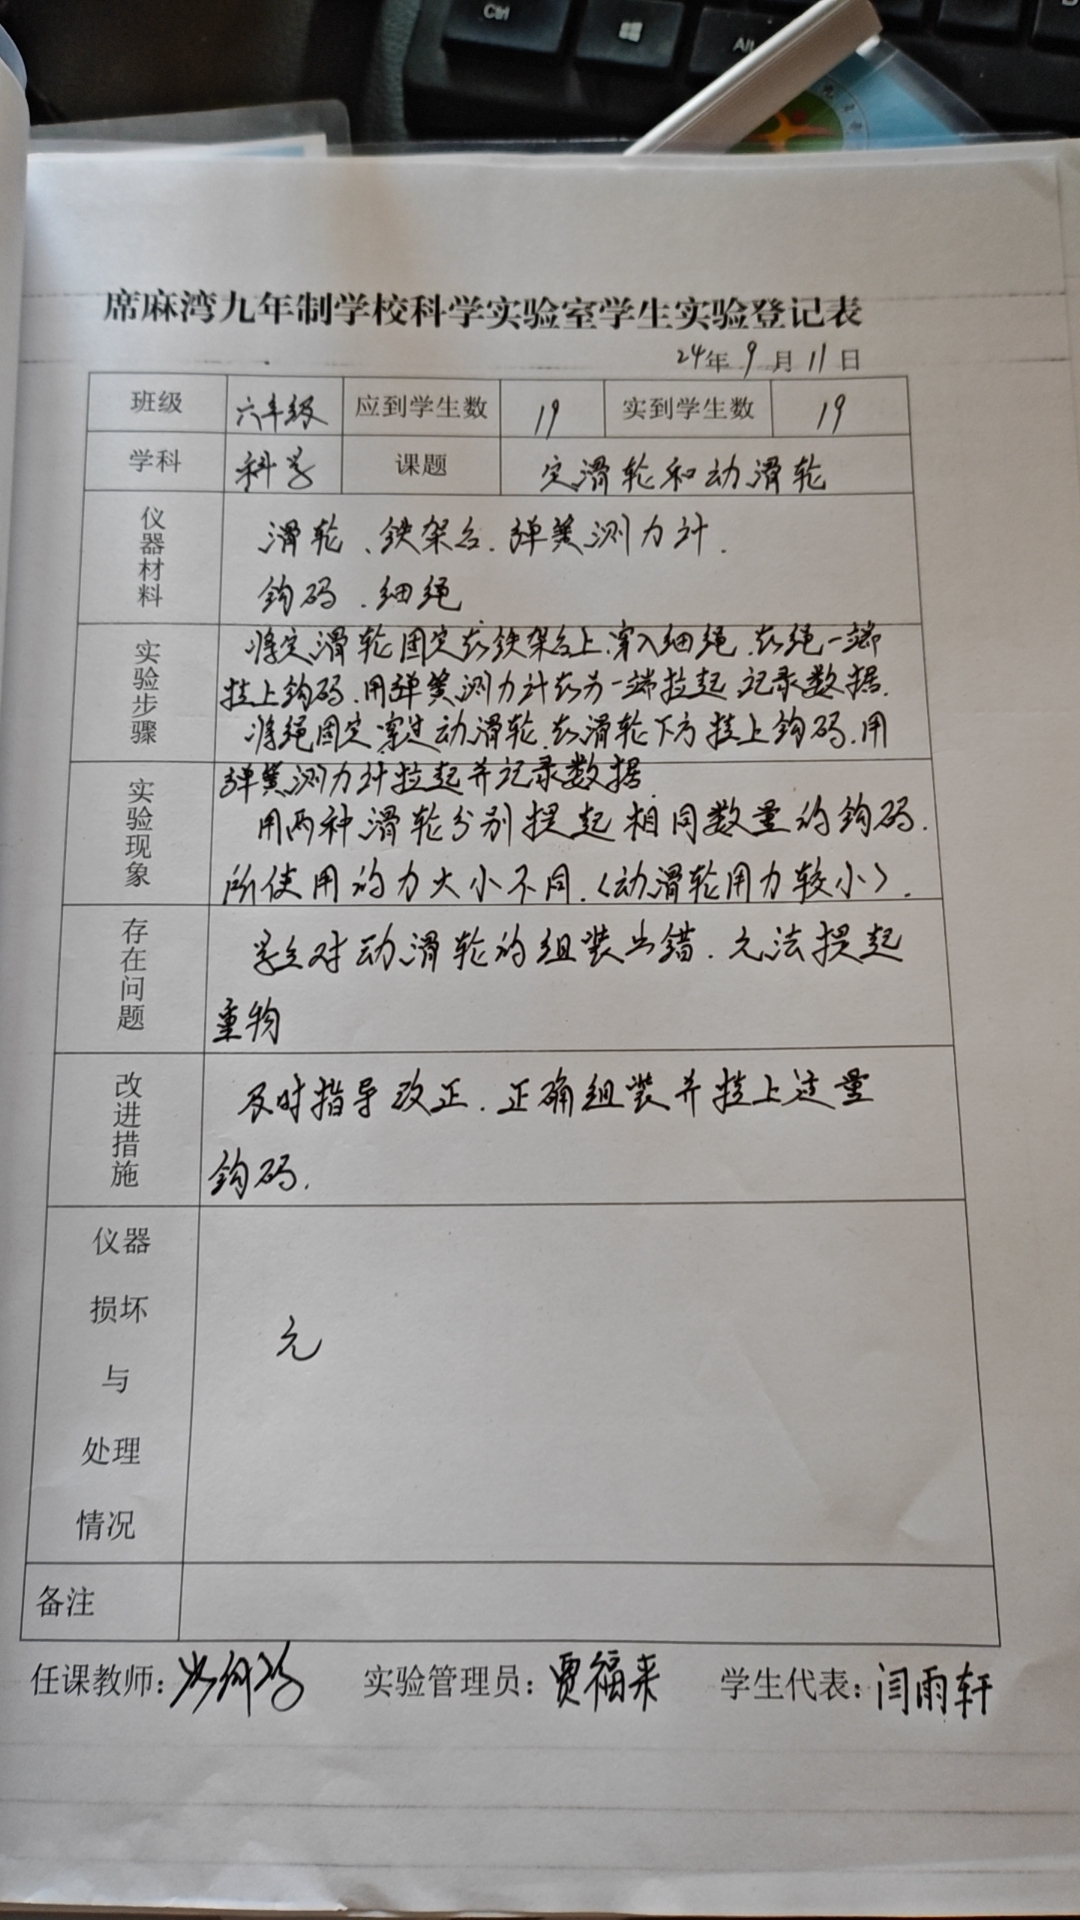 Ctrl
Alt
席麻湾九年制学校科学实验室学生实验登记表
24年9月11日
班级 六年级 应到学生数 19 实到学生数 19
学科 科学 课题 定滑轮和动滑轮
仪器材料
滑轮、铁架台.弹簧测力计.
钩码.细绳
实验步骤
将定滑轮固定在铁架台上.穿入细绳.在绳一端
挂上钩码.用弹簧测力计在另一端拉起 记录数据.
将绳固定穿过动滑轮.在滑轮下方挂上钩码.用
弹簧测力计拉起并记录数据
实验现象
用两种滑轮分别提起相同数量的钩码.
所使用的力大小不同.(动滑轮用力较小).
存在问题
学生对动滑轮的组装出错.无法提起
重物
改进措施
及时指导改正.正确组装并挂上过量
钩码.
仪器
损坏
与
处理
情况
无
备注
任课教师: 实验管理员:贾福来 学生代表:闫雨轩